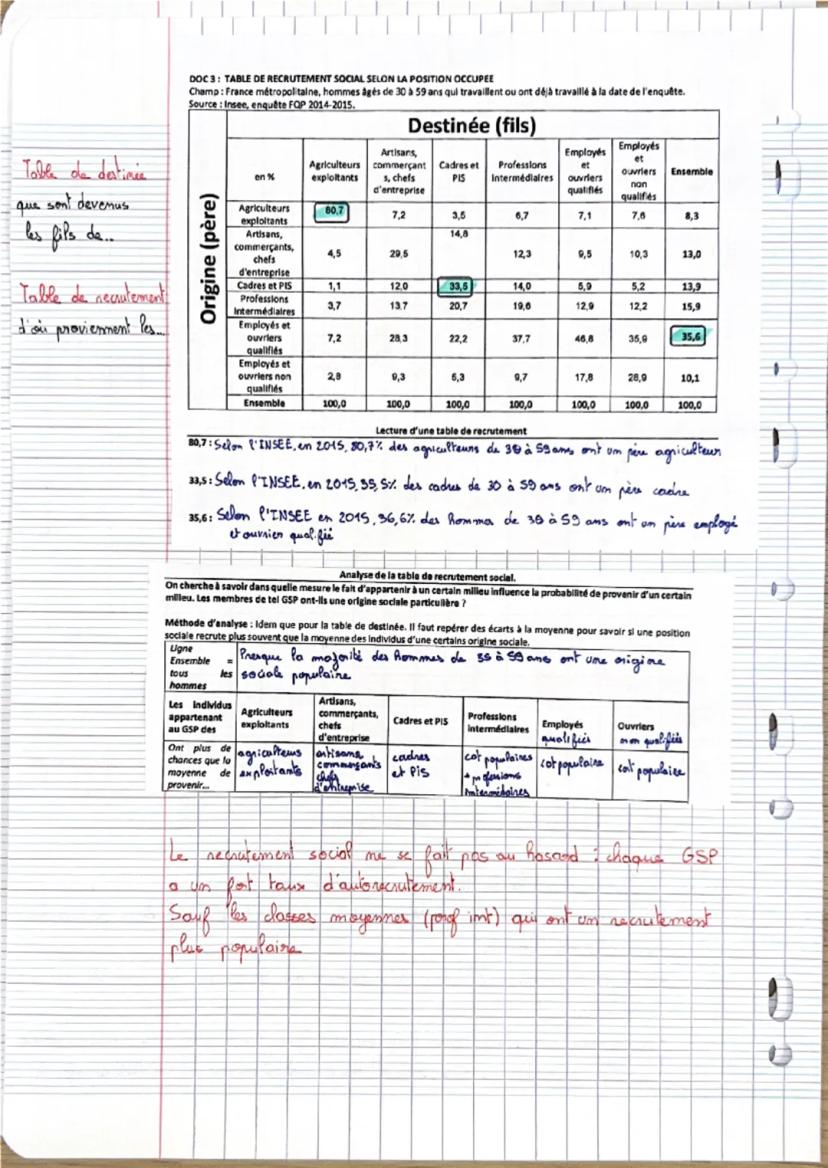 DOC 3 : TABLE DE RECRUTEMENT SOCIAL SELON LA POSITION OCCUPEE
Champ : France métropolitaine, hommes âgés de 30 à 59 ans qui travaillent ou ont déjà travaillé à la date de l'enquête.
Source : Insee, enquête FQP 2014-2015.
Table de destinée
que sont devenus
les fils de...
Table de recrutement
d'où proviennent les...
Origine (père)
Destinée (fils)
en % Agriculteurs exploitants Artisans, commerçants, chefs d'entreprise Cadres et PIS Professions Intermédiaires Employés et ouvriers qualifiés Employés et ouvriers non qualifiés Ensemble
Agriculteurs exploitants 80,7 7,2 3,5 6,7 7,1 7,6 8,3
Artisans, commerçants, chefs d'entreprise 4,5 29,5 14,8 12,3 9,5 10,3 13,0
Cadres et PIS 1,1 12,0 33,5 14,0 5,9 5,2 13,9
Professions Intermédiaires 3,7 13,7 20,7 19,6 12,9 12,2 15,9
Employés et ouvriers qualifiés 7,2 28,3 22,2 37,7 46,8 35,9 35,6
Employés et ouvriers non qualifiés 2,8 9,3 5,3 9,7 17,8 28,9 10,1
Ensemble 100,0 100,0 100,0 100,0 100,0 100,0 100,0
Lecture d'une table de recrutement
80,7 : Selon l'INSEE, en 2015, 80,7% des agriculteurs de 30 à 59 ans ont un père agriculteur
33,5 : Selon l'INSEE, en 2015, 33,5% des cadres de 30 à 59 ans ont un père cadre
35,6 : Selon l'INSEE en 2015, 36,6% des hommes de 30 à 59 ans ont un père employé
et ouvrier qualifié
Analyse de la table de recrutement social.
On cherche à savoir dans quelle mesure le fait d'appartenir à un certain milieu influence la probabilité de provenir d'un certain
milieu. Les membres de tel GSP ont-ils une origine sociale particulière ?
Méthode d'analyse : Idem que pour la table de destinée. Il faut repérer des écarts à la moyenne pour savoir si une position
sociale recrute plus souvent que la moyenne des individus d'une certains origine sociale.
Ligne Ensemble = tous les hommes
Presque la majorité des hommes de 35 à 59 ans ont une origine
sociale populaire
Les individus appartenant au GSP des Agriculteurs exploitants Artisans, commerçants, chefs d'entreprise Cadres et PIS Professions intermédiaires Employés qualifiés Ouvriers non qualifiés
Ont plus de chances que la moyenne de provenir... agriculteurs exploitants artisans commerçants chefs d'entreprise cadres et PIS cat populaires + professions intermédiaires cat populaire cat populaire
Le recrutement social ne se fait pas au hasard : chaque GSP
a un fort taux d'autorecrutement.
Sauf les classes moyennes (prof imt) qui ont un recrutement
plus populaire